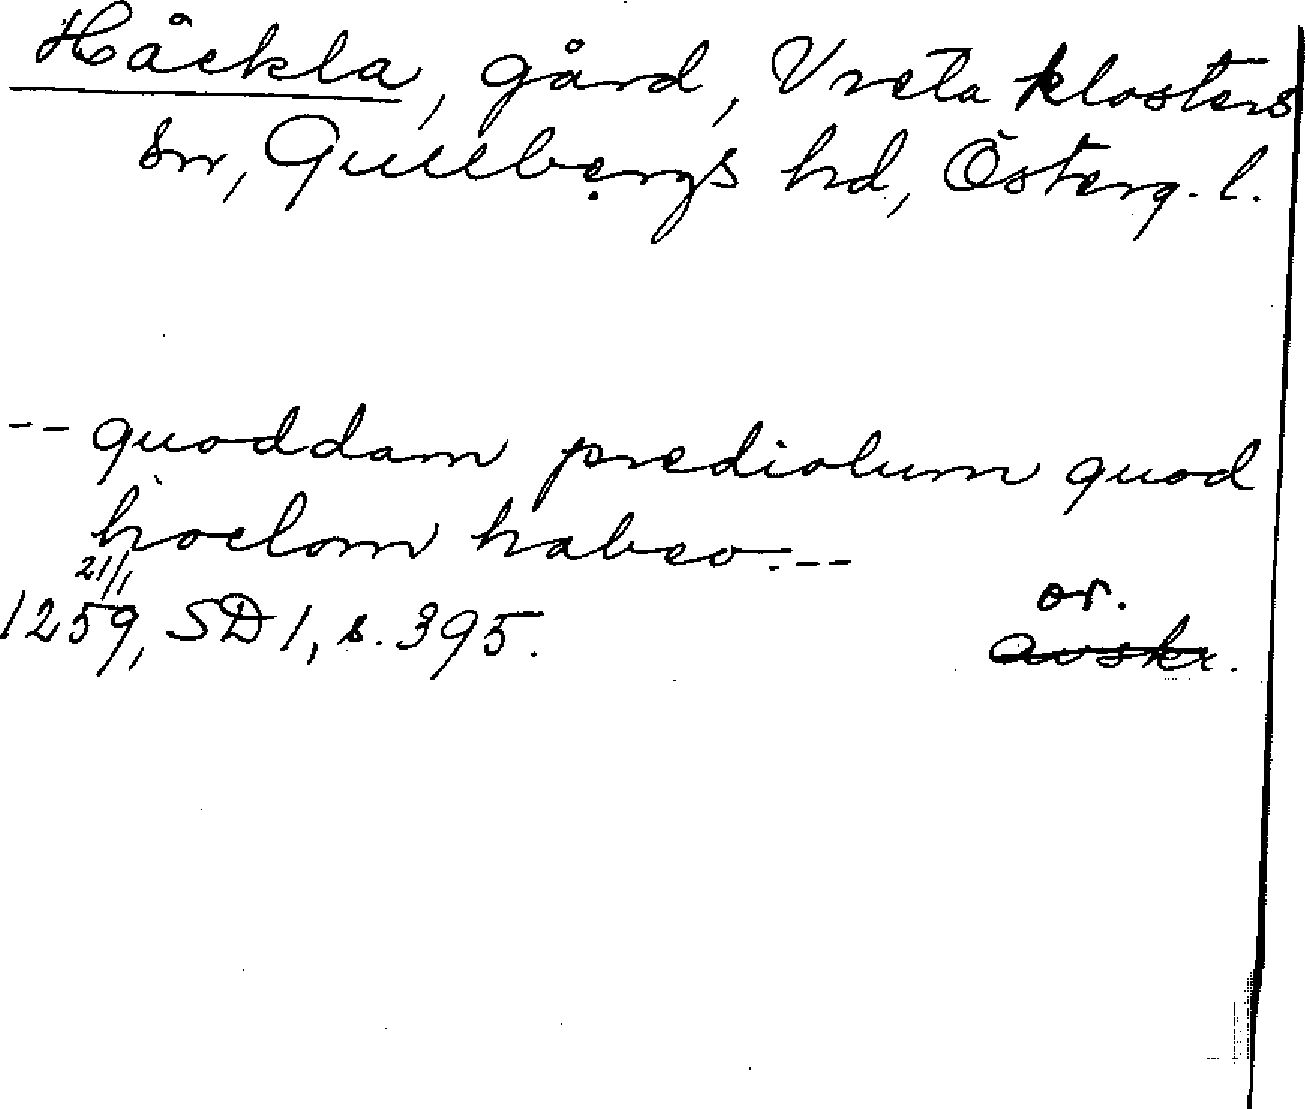 Håckla, gård, Vreta klosters
sn, Gullbergs hd, Österg. l.
-- quoddam prediolum quod
hoclom habeo. --
21/1
1259, SD 1, s. 395.
or.
avskr.